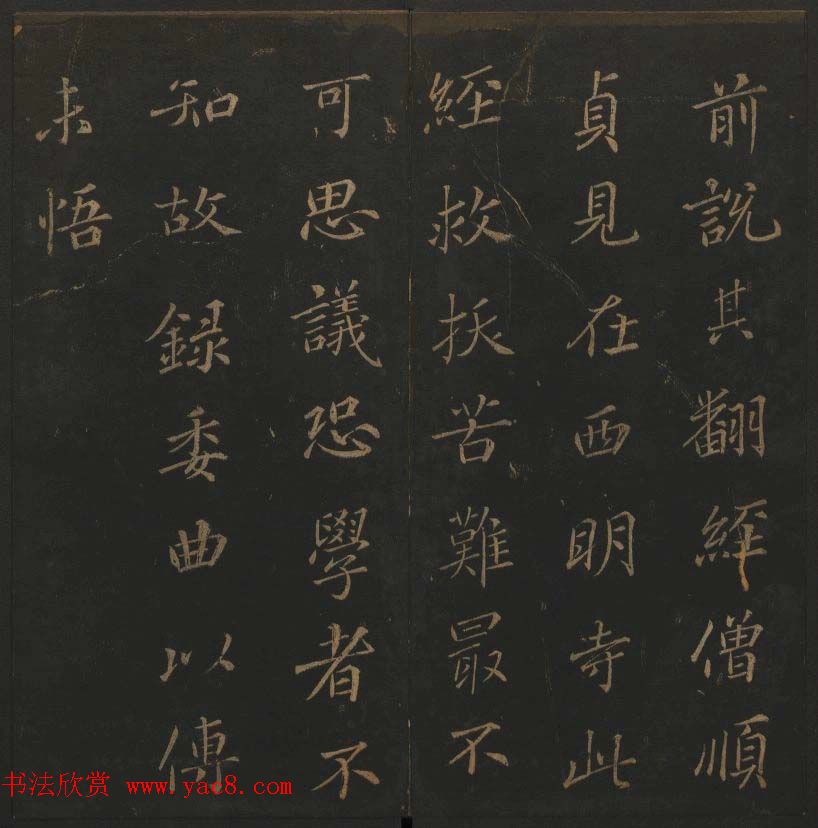 前說其翻經僧順
貞見在西明寺此
經救扷苦難最不
可思議恐學者不
知故録委曲以傳
未悟
书法欣赏 www.yac8.com